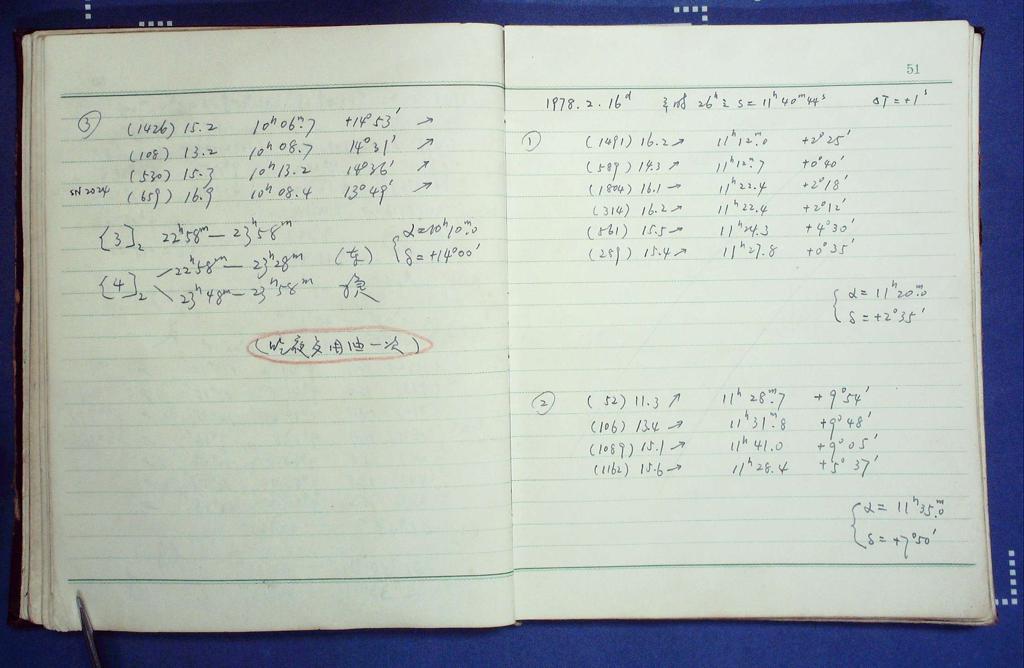 ③ (1426) 15.2 10ʰ06ᵐ.7 +14°53′ ↗
(108) 13.2 10ʰ08.7 14°31′ ↗
(530) 15.3 10ʰ13.2 14°36′ ↗
(659) 16.9 10ʰ08.4 13°49′ ↗
{3}₂ 22ʰ58ᵐ — 23ʰ58ᵐ
α=10ʰ10ᵐ.0
δ=+14°00′
{4}₂ 22ʰ58ᵐ — 23ʰ28ᵐ
23ʰ48ᵐ — 23ʰ58ᵐ
51
1978.2.16ᵈ 26ʰ S=11ʰ40ᵐ44ˢ ΔT=+1ˢ
① (1491) 16.2→ 11ʰ12ᵐ.0 +2°25′
(589) 14.3→ 11ʰ12ᵐ.7 +0°40′
(1804) 16.1→ 11ʰ22.4 +2°18′
(314) 16.2→ 11ʰ22.4 +2°12′
(561) 15.5→ 11ʰ24.3 +4°30′
(259) 15.4→ 11ʰ27.8 +0°35′
α=11ʰ20ᵐ.0
δ=+2°35′
② (52) 11.3 ↗ 11ʰ28ᵐ.7 +9°54′
(106) 13.4→ 11ʰ31ᵐ.8 +9°48′
(1089) 15.1→ 11ʰ41.0 +9°05′
(1162) 15.6→ 11ʰ28.4 +5°37′
α=11ʰ35ᵐ.0
δ=+7°50′